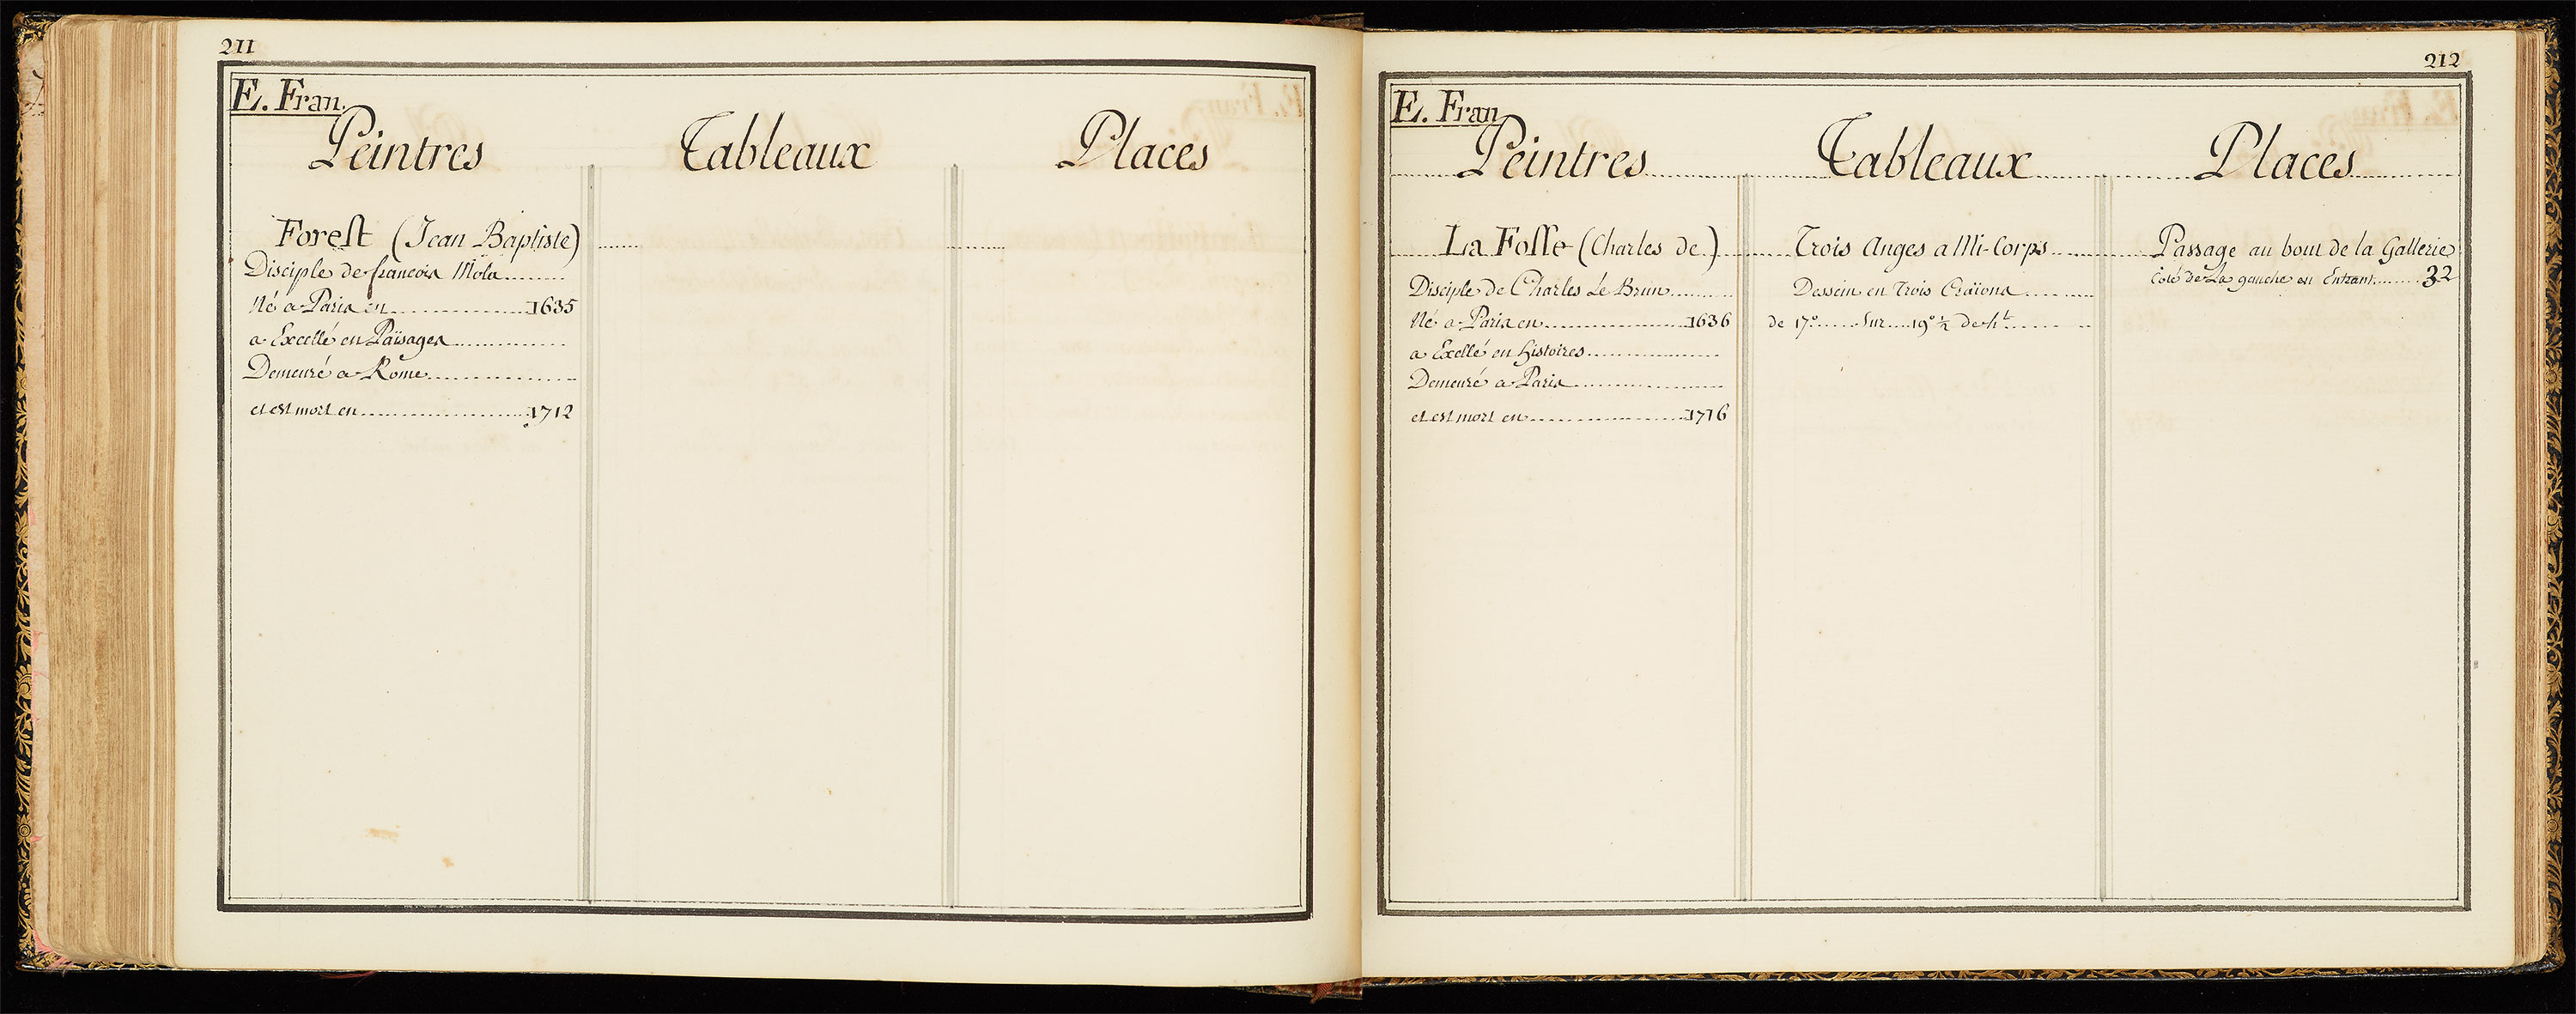 211
E. Fran.
Peintres Tableaux Places
Forest (Jean Baptiste)
Disciple de francois Mola
Né a Paris en 1635
a Excellé en Païsages
Demeuré a Rome
et est mort en 1712
212
E. Fran
Peintres Tableaux Places
La Fosse (Charles de) Trois Anges a Mi-Corps Passage au bout de la Gallerie
Coté de La gauche en Entrant 32
Disciple de Charles Le Brun Dessein en Trois Craïons
Né a Paris en 1636 de 17º Sur 19º ½ de ht
a Exellé en Histoires
Demeuré a Paris
et est mort en 1716